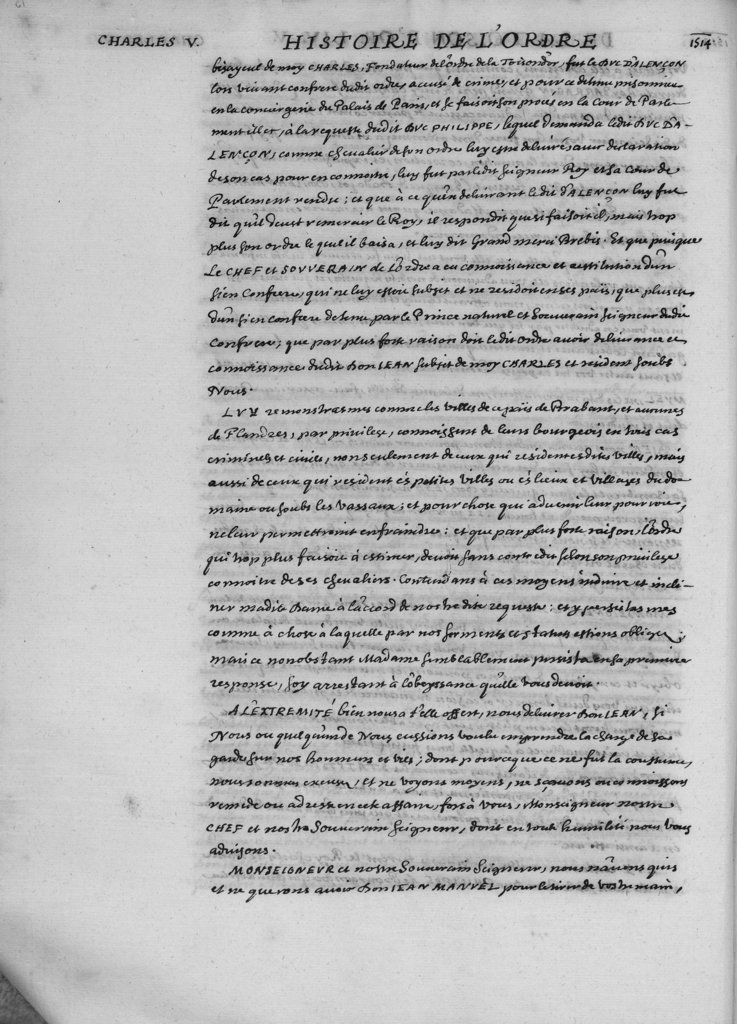 CHARLES V. HISTOIRE DE L'ORDRE 1514
bisayeul de moy CHARLES, Fondateur de l'ordre de la Toison d'or, fut le DUC D'ALENÇON
lors vivant confrere dudit ordre, accusé de crime, et pour ce detenu prisonnier
en la conciergerie du Palais de Paris, et se faisoit son procés en la Cour de Parle-
ment illec, à la requeste dudit DUC PHILIPPE, lequel demanda ledit DUC D'A-
LENÇON, comme chevalier de son ordre luy estre delivré, avec declaration
de son cas pour en connoitre, luy fut par ledit seigneur Roy et sa Cour de
Parlement rendu; et que à ce qu'en delivrant ledit D'ALENÇON luy fut
dit qu'il deust remercier le Roy, il respondit que si faisoit il, mais trop
plus son ordre lequel il baisa, et luy dit Grand merci Brebis. Et que puisque
Le CHEF et SOUVERAIN de l'ordre a eu connoissance et restitution d'un
sien Confrere, qui ne luy estoit subjet et ne residoit en ses païs, que plus est
d'un sien confrere detenu par le Prince naturel et souverain seigneur dudit
Confrere; que par plus forte raison doit ledit ordre avoir delivrance et
connoissance dudit Don JEAN subjet de moy CHARLES et resident soubs
Nous.
LUY remonstrasmes comme les villes de ce païs de Brabant, et aucunes
de Flandres, par privilege, connoissent de leurs bourgeois en tous cas
criminels et civils, non seulement de ceux qui resident esdites villes, mais
aussi de ceux qui resident és petites villes ou és lieux et villages du do-
maine ou soubs les vassaux; et pour chose qui advenir leur pourroit,
ne leur permettroient enfraindre: et que par plus forte raison, l'ordre
qui trop plus faisoit à estimer, devoit sans contredit selon son privilege
connoitre de ses chevaliers. Contendans à ces moyens induire et incli-
ner madite Dame à l'accord de nostredite requeste: et y persistasmes
comme à chose à laquelle par nos serments et statuts estions obligez;
mais ce nonobstant Madame semblablement persista en sa premiere
response, soy arrestant à l'obeyssance qu'elle vous devoit.
A L'EXTREMITÉ bien nous a t'elle offert, nous delivrer Don JEAN, si
Nous ou quelqu'un de Nous eussions voulu emprendre la charge de sa
garde sur nos honneurs et vies; dont pource que ce ne fut la coustume,
nous sommes excusez, et ne voyons moyens, ne sçavons ou connoissons
remede ou adresse en cet affaire, fors à vous, Monseigneur nostre
CHEF et nostre Souverain seigneur, dont en toute humilité nous vous
advisons.
MONSEIGNEUR et nostre Souverain Seigneur, nous n'avons quis
et ne querons avoir Don JEAN MANUEL pour le tirer de vostre main,